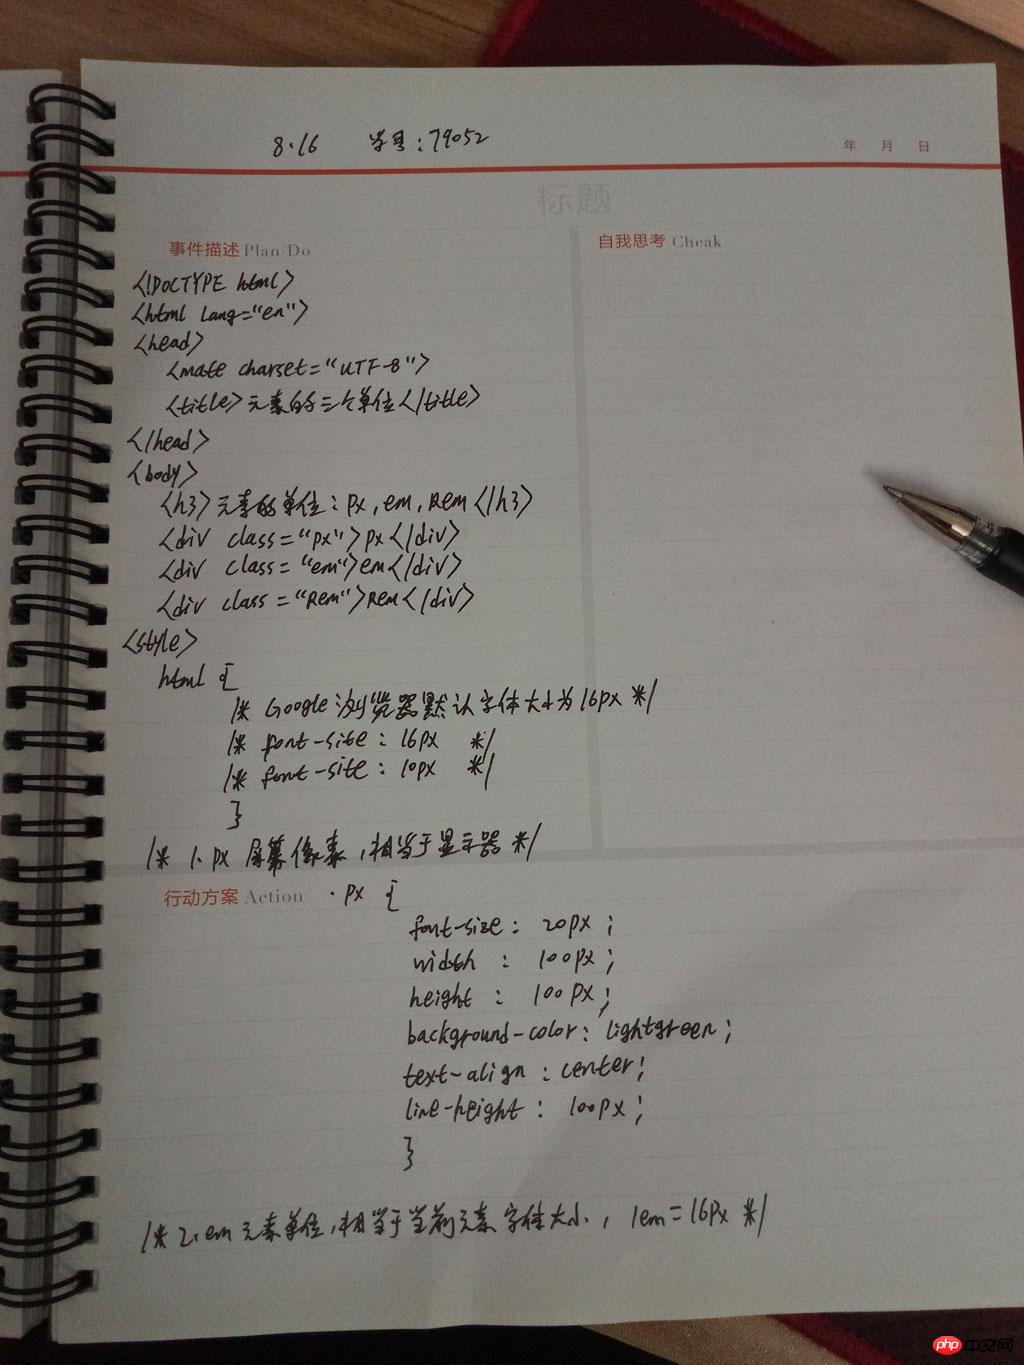 8.16 学号:79052
年 月 日
标题
事件描述 Plan/Do
自我思考 Cheak
<!DOCTYPE html>
<html lang="en">
<head>
<mate charset="UTF-8">
<title>元素的三个单位</title>
</head>
<body>
<h3>元素的单位:px,em,Rem</h3>
<div class="px">px</div>
<div class="em">em</div>
<div class="Rem">Rem</div>
<style>
html {
/* Google 浏览器默认字体大小为16px */
/* font-site: 16px */
/* font-site: 10px */
}
/* 1. px 屏幕像素,相当于显示器 */
行动方案 Action
.px {
font-size: 20px;
width: 100px;
height: 100px;
background-color: lightgreen;
text-align: center;
line-height: 100px;
}
/* 2. em 元素单位,相当于当前元素字体大小, 1em=16px */
php 中文网